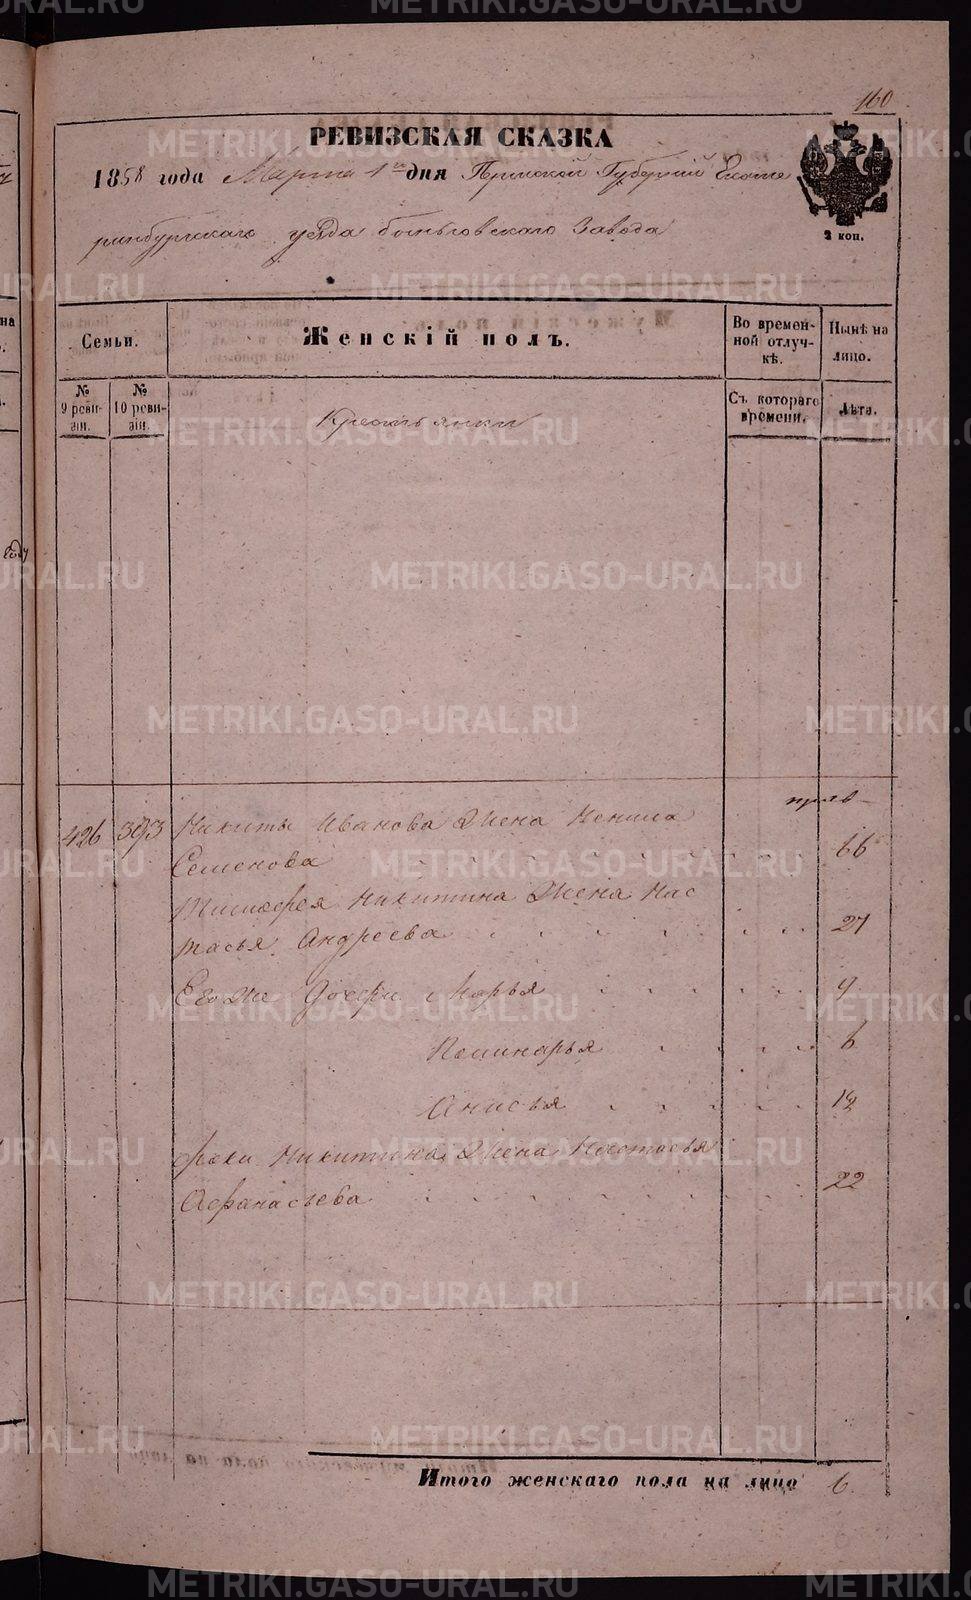 160
РЕВИЗСКАЯ СКАЗКА
1858 года Марта 1го дня Пермской Губерніи Екате
ринбургскаго уезда Быньговскаго Завода
2 коп.
Семьи.
Женскій полъ.
Во времен-
ной отлуч-
кѣ.
Нынѣ на
лицо.
№
9 реви-
зіи.
№
10 реви-
зіи.
Съ котораго
времени.
Лѣта.
Крестьянки
426 393 Никиты Иванова Жена
Семенова 66
Тимофея Никитина Жена Нас
тасья Андреева 27
Его же Дочери Марья
6
Анисья
Никитина Жена Настасья
Афанасьева 22
Итого женскаго пола на лицо 6
году
METRIKI.GASO-URAL.RU